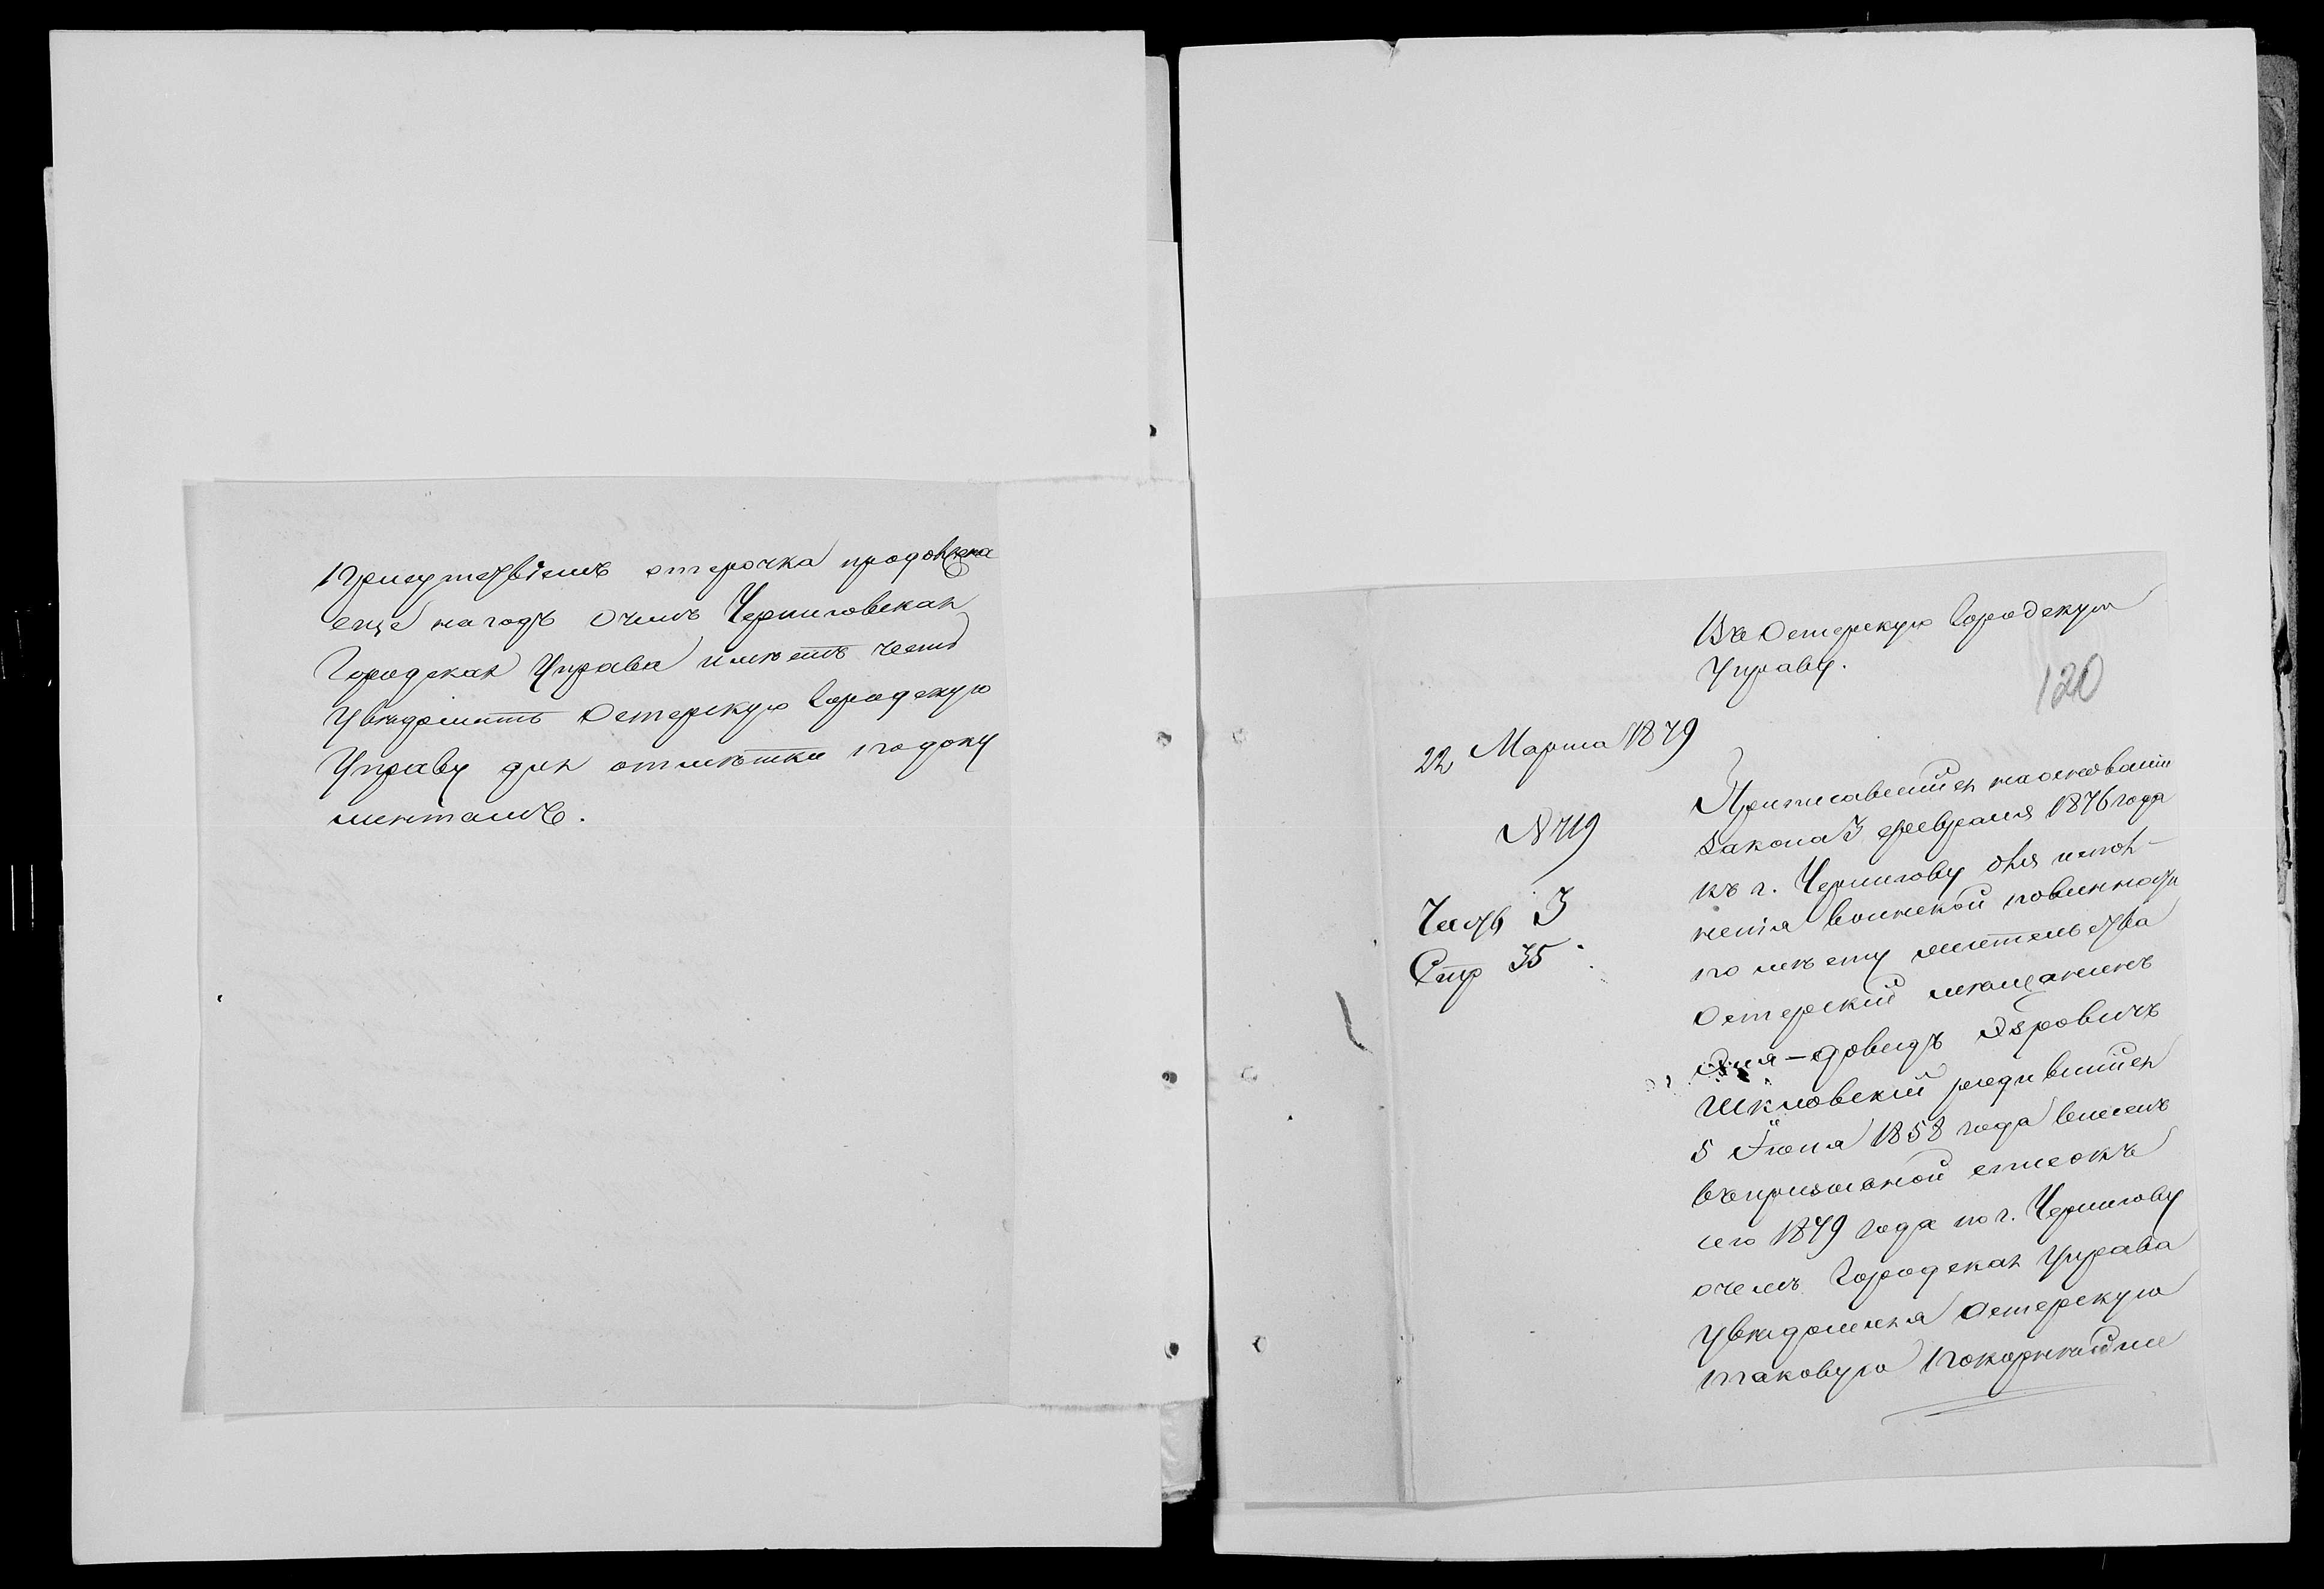 Присутствіемъ отсрочка продолжена
еще на годъ о чемъ Черниговская
Городская Управа имѣетъ честь
Увѣдомить Остерскую Городскую
Управу для отмѣтки по доку
ментамъ.
Въ Остерскую Городскую
Управу.
120
22 Марта 1879
№ 719
Часть I
Стр 35
Приписавшійся на основаніи
закона 3 февраля 1876 года
къ г. Чернигову для испол-
ненія воинской повинности
по мѣсту жительства
Остерскій мѣщанинъ
Довидъ Лейровичъ
Шкловскій родившійся
5 Іюня 1858 года внесенъ
въ призывной списокъ
сего 1879 года по г. Чернигову
о чемъ Городская Управа
увѣдомляя Остерскую
таковую покорнѣйше